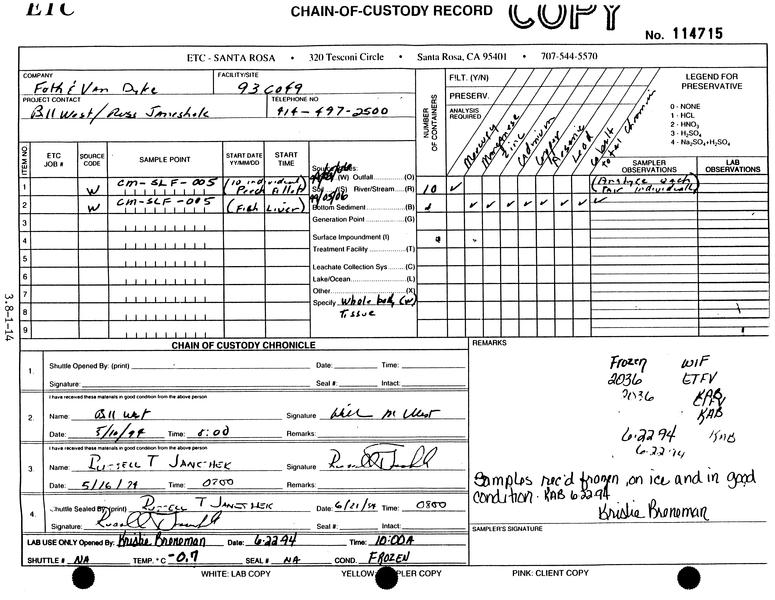 ETC
CHAIN-OF-CUSTODY RECORD
COPY
No. 114715
ETC - SANTA ROSA • 320 Tesconi Circle • Santa Rosa, CA 95401 • 707-544-5570
COMPANY
Foth & Van Dyke
FACILITY/SITE
93C049
PROJECT CONTACT
Bill West/Russ Janeshek
TELEPHONE NO
414-497-2500
NUMBER OF CONTAINERS
FILT. (Y/N)
PRESERV.
ANALYSIS REQUIRED
Mercury
Manganese
Zinc
Cadmium
Copper
Arsenic
Lead
Cobalt
Total Chromium
LEGEND FOR PRESERVATIVE
0 - NONE
1 - HCL
2 - HNO3
3 - H2SO4
4 - Na2SO4+H2SO4
ITEM NO
ETC JOB #
SOURCE CODE
SAMPLE POINT
START DATE YY/MM/DD
START TIME
SAMPLER OBSERVATIONS
LAB OBSERVATIONS
1 W CM-SLF-005 (10 individual Perch fillets) 10 ✓ (Analyze each individually)
2 W CM-SLF-005 (Fish Liver) ✓ ✓ ✓ ✓ ✓ ✓ ✓ ✓
3
4
5
6
7
8
9
(W) Outfall (O)
Soil (S) River/Stream (R)
Bottom Sediment (B)
Generation Point (G)
Surface Impoundment (I)
Treatment Facility (T)
Leachate Collection Sys (C)
Lake/Ocean (L)
Other (X)
Specify Whole body (W)
Tissue
3.8-1-14
CHAIN OF CUSTODY CHRONICLE
1. Shuttle Opened By: (print) Date: Time:
Signature: Seal #: Intact:
I have received these materials in good condition from the above person
2. Name: Bill West Signature
Date: 5/10/94 Time: 5:00 Remarks:
I have received these materials in good condition from the above person
3. Name: Russell T Janeshek Signature
Date: 5/16/94 Time: 0700 Remarks:
4. Shuttle Sealed By: (print) Russell T Janeshek 6/21/94 0800
Signature: Seal #: Intact:
LAB USE ONLY Opened By: Kristie Broneman Date: 6-22-94 Time: 10:00A
SHUTTLE # NA TEMP. °C -0.7 SEAL # NA COND. FROZEN
REMARKS
Frozen WIF
2036 ETFV
2036 KAB
ETFV
KAB
6-22 94 KAB
6-22-94
Samples rec'd frozen, on ice and in good
condition. KAB 6-22-94
Kristie Broneman
SAMPLER'S SIGNATURE
WHITE: LAB COPY YELLOW: SAMPLER COPY PINK: CLIENT COPY